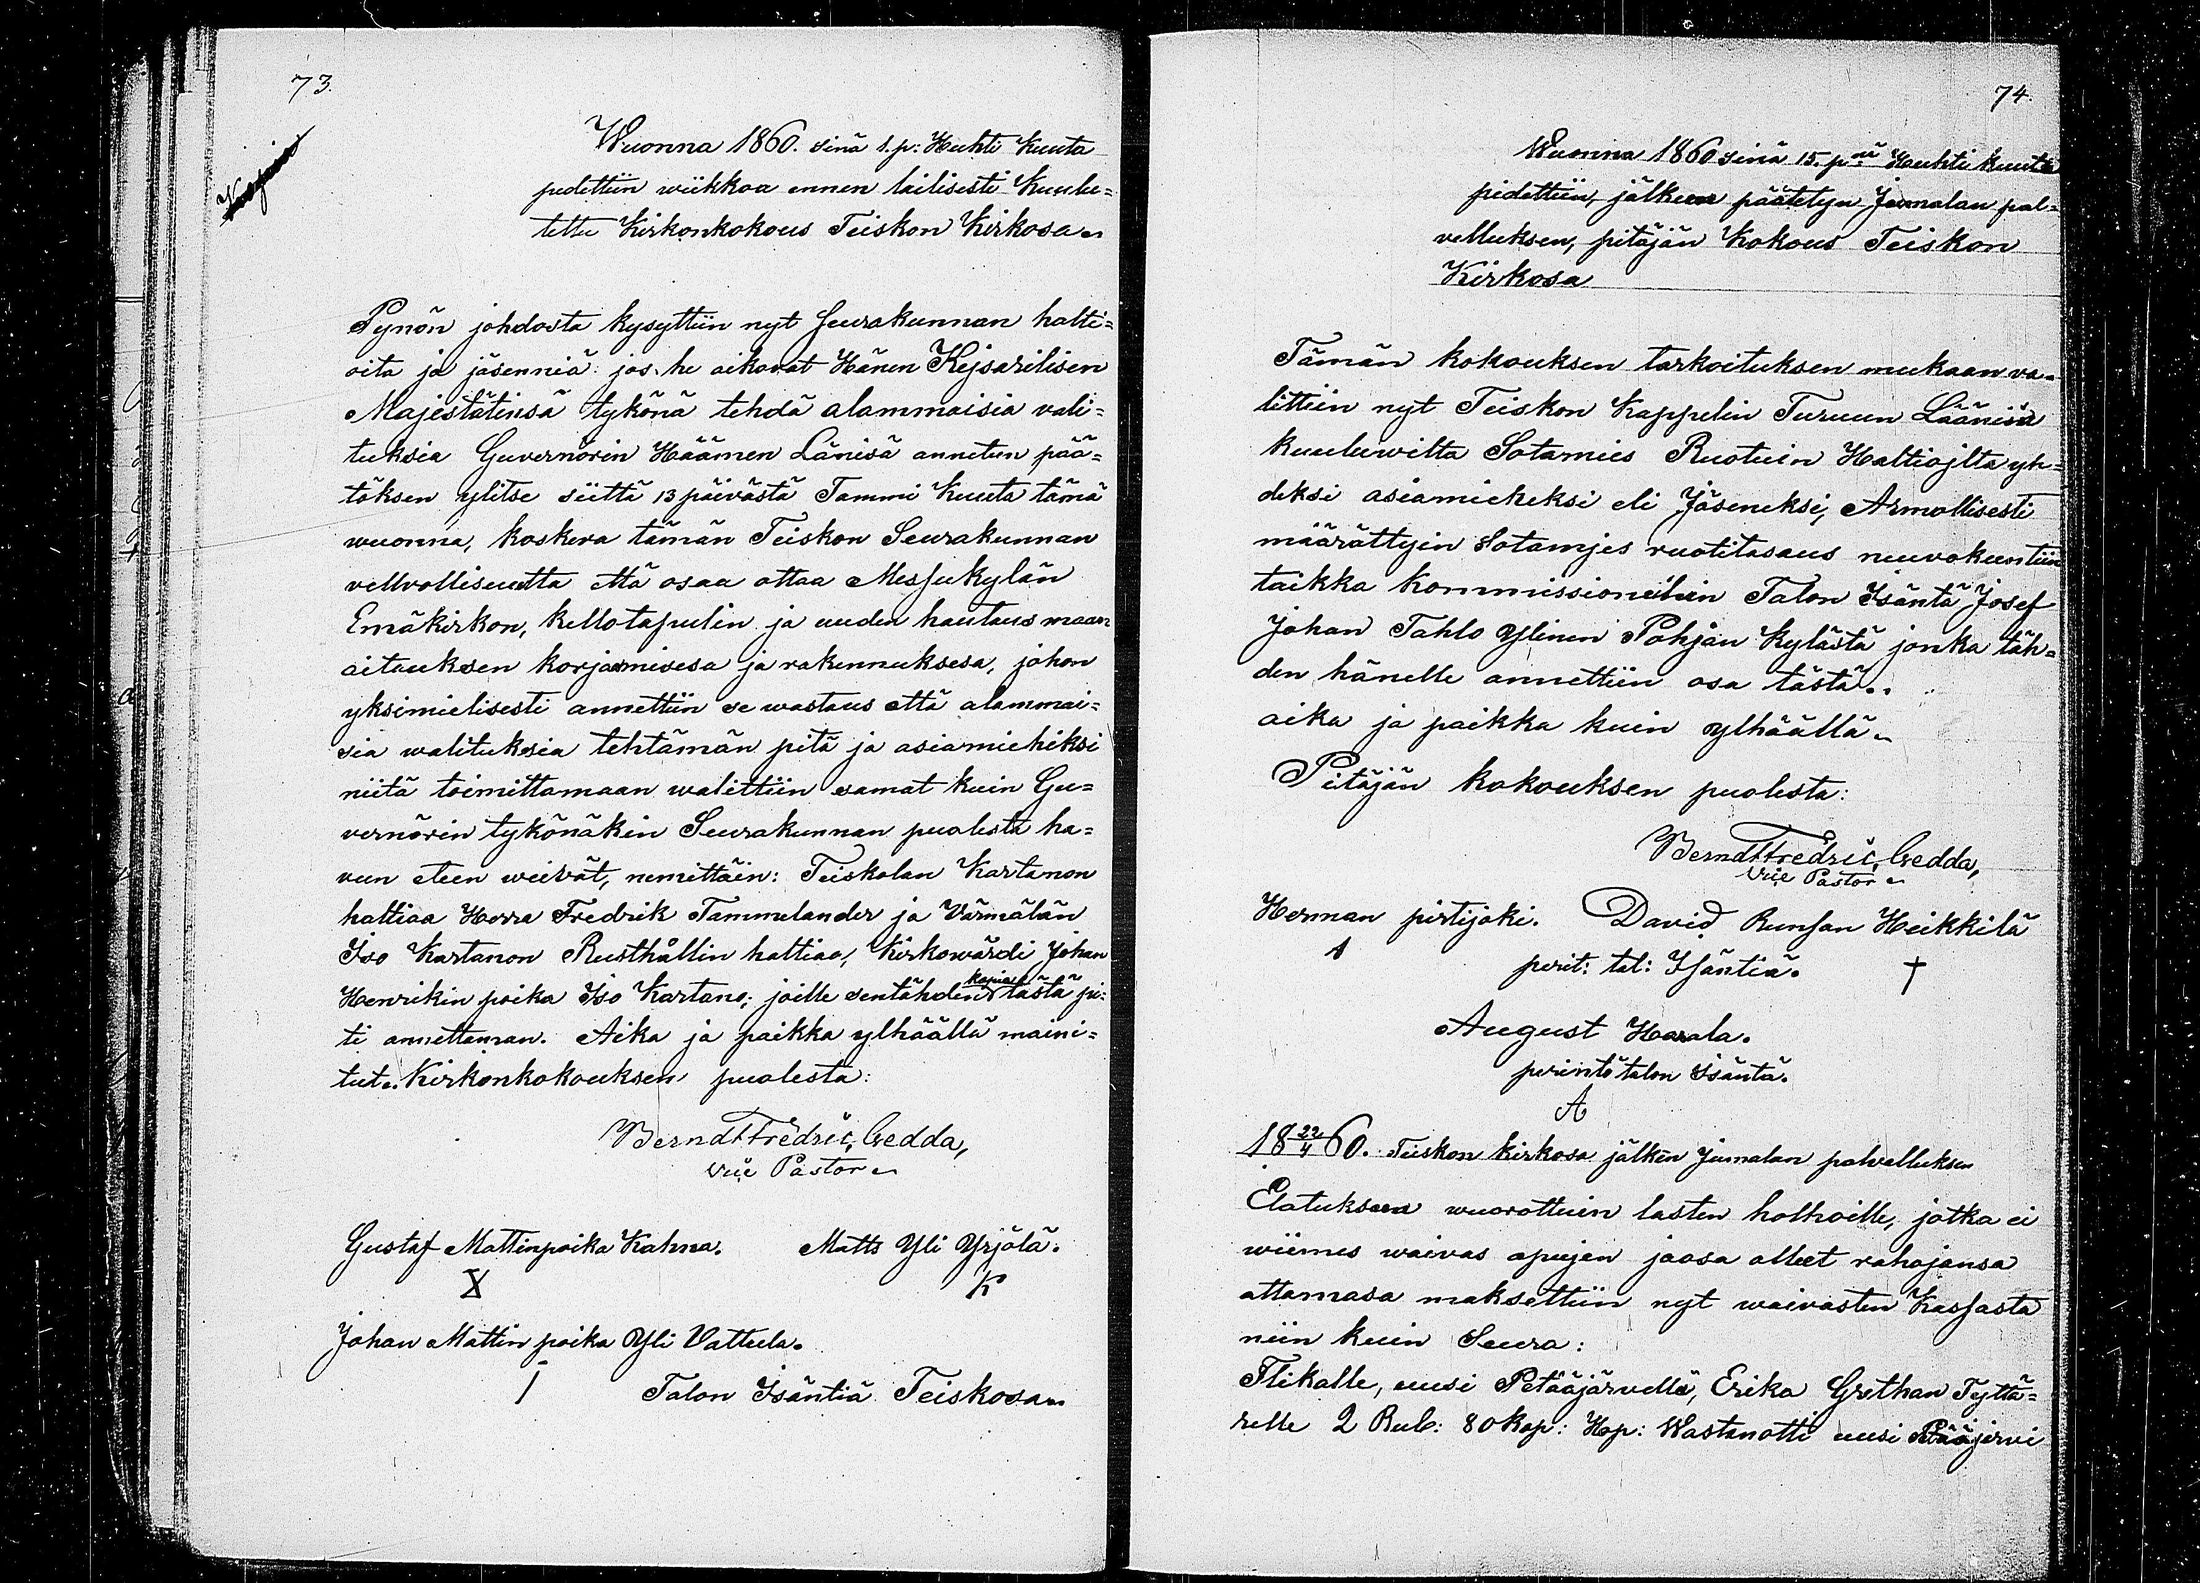 73.
Wuonna 1860. sinä 1. p: Huhti Kuuta
pidettiin wiikkoa ennen lailisesti Kuulu=
tettu Kirkonkokous Teiskon Kirkosa.
Pynön johdosta kysyttiin nyt Seurakunnan halti=
oita ja jäsenniä jos he aikovat Hänen Kejsarilisen
Majestätinsä tykönä tehdä alammaisia vali=
tuksia Guvernörin Häämen Länisä annetun pää=
töksen ylitse siittä 13 päivästä Tammi Kuuta tämä
wuonna, koskeva tämän Teiskon Seurakunnan
vellvollisuutta että osaa ottaa Messukylän
Emäkirkon, kellotapulin ja uuden hautausmaan
aitauksen korjamisesa ja rakennuksesa, johon
yksimielisesti annettiin se wastaus että alammai=
sia walituksia tehtämän pitä ja asiamiehiksi
niitä toimittamaan walittiin samat kuin Gu=
vernörin tykönäkin Seurakunnan puolesta ha=
vun eteen weivät, nemittäin: Teiskolan Kartanon
haltiaa Herra Fredrik Tammelander ja Värmälän
Iso Kartanon Rusthållin haltiaa, Kirkowärdi Johan
Henrikin poika Iso Kartano; joille sentähden kopiaa tästä pi=
ti annettaman. Aika ja paikka ylhäällä maini=
tut. Kirkonkokouksen puolesta:
Berndt Fredric Gedda,
Vice Pastor
Gustaf Mattinpoika Kahna. Matts Yli Yrjölä.
X K
Johan Mattin poika Yli Vattula.
I Talon Isäntiä Teiskosa
74.
Wuonna 1860 sinä 15. p nä Huhti kuuta
pidettiin, jälkeen päätetyn Jumalan pal=
velluksen, pitäjän Kokous Teiskon
Kirkosa
Tämän kokouksen tarkoituksen mukaan va=
littiin nyt Teiskon Kappelin Turuun Läänisä
kuuluwilta Sotamies Ruotuin Haltiojlta yh=
deksi asiamieheksi eli Jäseneksi, Armollisesti
määrättyin Sotamjes ruotitasaus neuvokuntiin
taikka Kommissioneihin Talon Isäntä Josef
Johan Tahlo Ylinen Pohjan Kylästä jonka täh=
den hänelle annettiin osa tästä.
aika ja paikka kuin ylhäällä.
Pitäjän kokouksen puolesta:
Berndt Fredric Gedda,
Vice Pastor
Herman pirtijoki. David Runsan Heikkilä
A perit: tal: Isäntiä. †
August Harala.
perintö talon Isäntä.
A
18 22/4 60. Teiskon kirkosa jälken Jumalan palvelluksen
Elatuksen wuorottuin lasten holhoille, jotka ei
wiimes waivas apujen jaosa olleet rahojansa
ottamasa maksettiin nyt waivasten Kassasta
niin kuin Seura:
Flikalle, uusi Petääjärvellä, Erika Grethan Tyttä=
relle 2 Rub: 80 kop: Hop: Wastanotti uusi Pääjervi